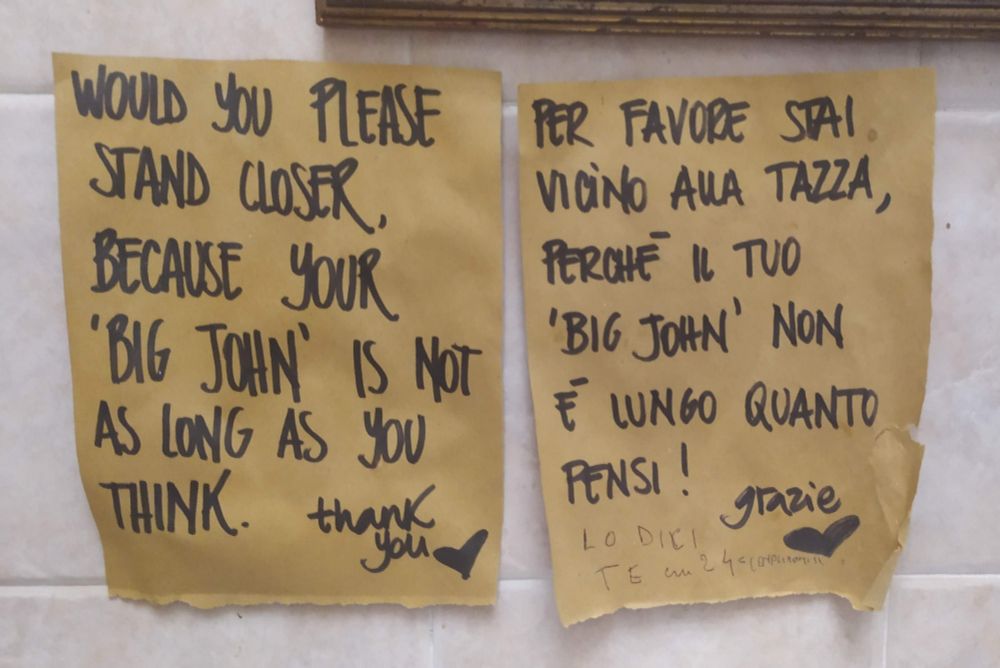 WOULD YOU PLEASE
STAND CLOSER,
BECAUSE YOUR
'BIG JOHN' IS NOT
AS LONG AS YOU
THINK.
thank
you
PER FAVORE STAI
VICINO ALLA TAZZA,
PERCHÉ IL TUO
'BIG JOHN' NON
É LUNGO QUANTO
PENSI!
grazie
LO DICI
TE cm 24